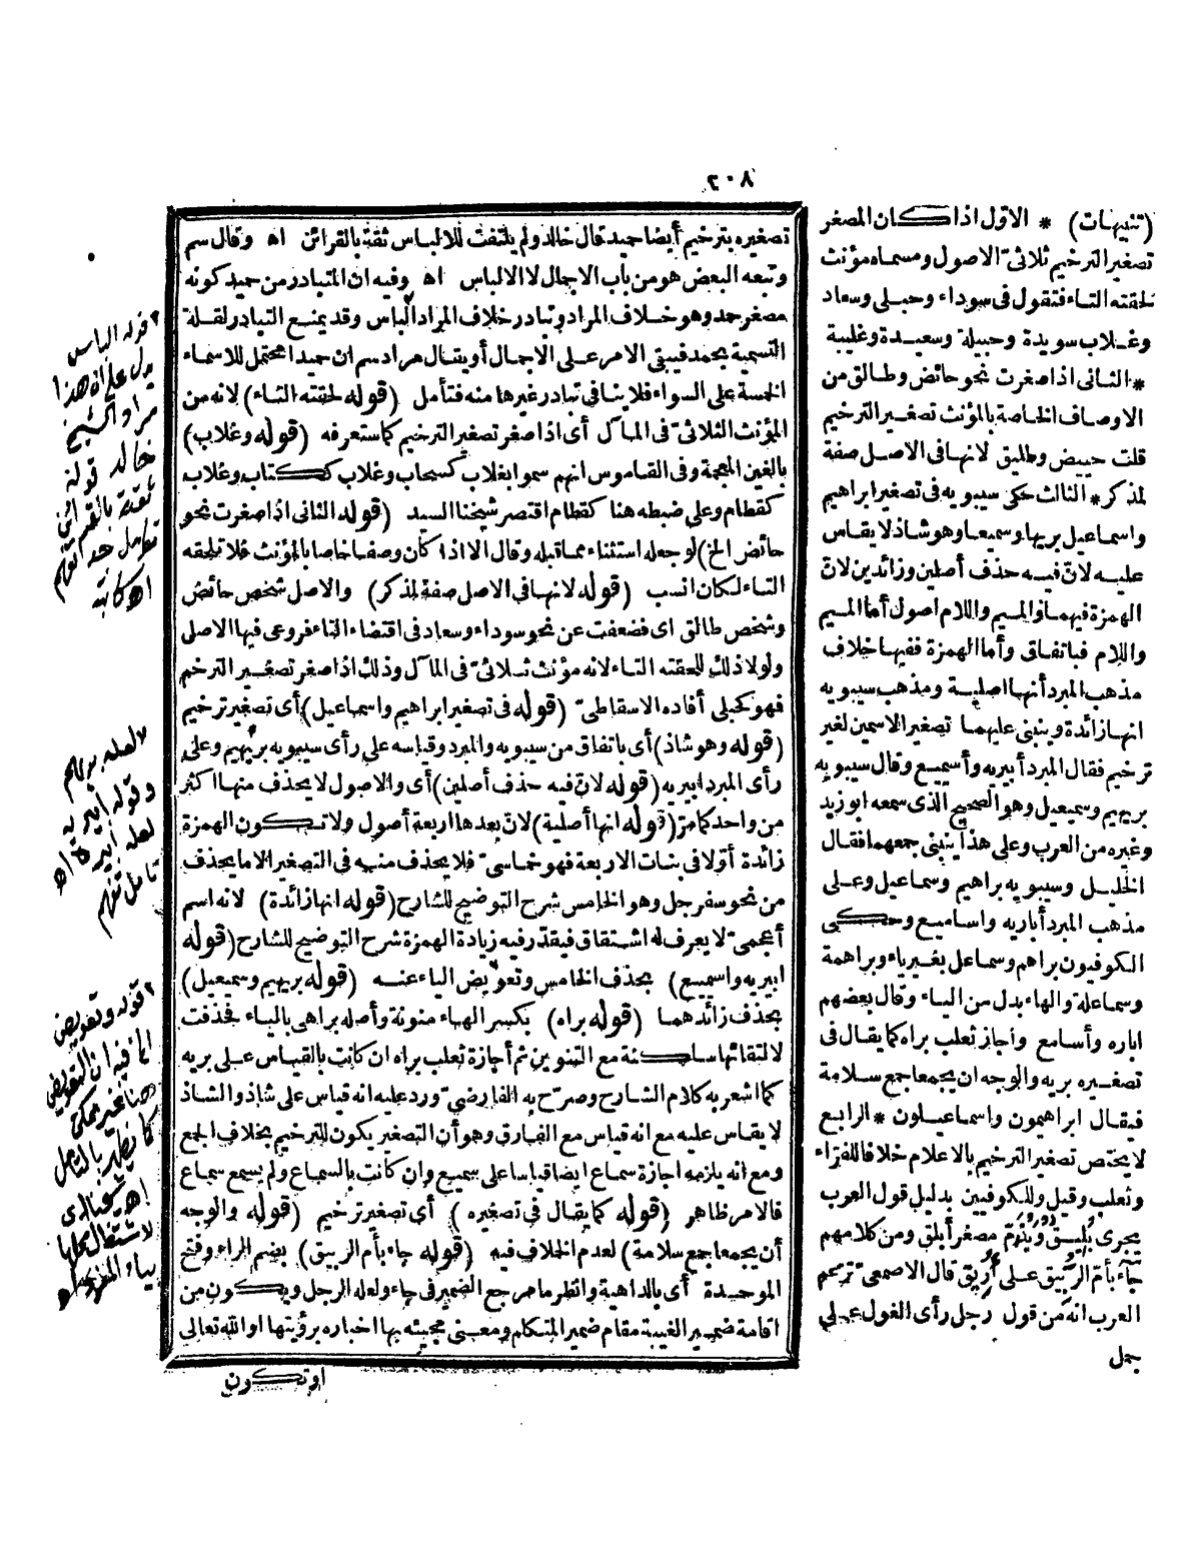 ٢٠٨
(تنبيهات) * الاوّل اذا كان المصغر
تصغير الترخيم ثلاثىّ الاصول ومسماه مؤنث
لحقته التاء فتقول فى سوداء وحبلى وسعاد
وغلاب سويدة وحبيلة وسعيدة وغليبة
* الثانى اذا صغرت نحو حائض وطالق من
الاوصاف الخاصة بالمؤنث تصغير الترخيم
قلت حييض وطليق لانها فى الاصل صفة
لمذكر * الثالث حكى سيبويه فى تصغير ابراهيم
واسماعيل بريها وسميعا وهو شاذ لا يقاس
عليه لانّ فيه حذف أصلين وزائدين لانّ
الهمزة فيهما والميم واللام اصول أما الميم
واللام فباتفاق وأما الهمزة ففيها خلاف
مذهب المبرد أنها اصلية ومذهب سيبويه
انها زائدة وينبنى عليهما تصغير الاسمين لغير
ترخيم فقال المبرد أبيريه وأسيميع وقال سيبويه
بريهيم وسميعيل وهو الصحيح الذى سمعه ابو زيد
وغيره من العرب وعلى هذا ينبنى جمعهما فقال
الخليل وسيبويه براهيم وسماعيل وعلى
مذهب المبرد أباريه واساميع وحكى
الكوفيون براهم وسماعل بغير ياء وبراهمة
وسماعلة والهاء بدل من الياء وقال بعضهم
اباره وأسامع وأجاز ثعلب براه كما يقال فى
تصغيره بريه والوجه ان يجمعا جمع سلامة
فيقال ابراهيمون واسماعيلون * الرابع
لا يختص تصغير الترخيم بالاعلام خلافا للفرّاء
وثعلب وقيل وللكوفيين بدليل قول العرب
يجرى بُلَيق ويُذَمّ مصغر أبلق ومن كلامهم
جاء بأمّ الرُّبيق على أُرَيق قال الاصمعىّ تزعم
العرب انه من قول رجل رأى الغول على
جمل
تصغيره بترخيم أيضا حميد قال خالد ولم يلتفت للالباس ثقة بالقرائن اه وقال سم
وتبعه البعض هو من باب الاجمال لا الالباس اه وفيه ان المتبادر من حميد كونه
مصغر حمد وهو خلاف المراد وتبادر خلاف المراد الباس وقد يمنع التبادر لقلة
التسمية بحمد فيبقى الامر على الاجمال أو يقال مراد سم ان حميدا محتمل للاسماء
الخمسة على السواء فلا ينافى تبادر غيرها منه فتأمل (قوله لحقته التاء) لانه من
المؤنث الثلاثىّ فى المآل أى اذا صغر تصغير الترخيم كما ستعرفه (قوله وغلاب)
بالغين المعجمة وفى القاموس انهم سموا بغلاب كسحاب وغلاب ككتاب وغلاب
كقطام وعلى ضبطه هنا كقطام اقتصر شيخنا السيد (قوله الثانى اذا صغرت نحو
حائض الخ) لو جعله استثناء مما قبله وقال الا اذا كان وصفا خاصا بالمؤنث فلا تلحقه
التاء لكان انسب (قوله لانها فى الاصل صفة لمذكر) والاصل شخص حائض
وشخص طالق اى فضعفت عن نحو سوداء وسعاد فى اقتضاء التاء فروعى فيها الاصل
ولولا ذلك للحقته التاء لانه مؤنث ثلاثىّ فى المآل وذلك اذا صغر تصغير الترخيم
فهو كحبلى أفاده الاسقاطىّ (قوله فى تصغير ابراهيم واسماعيل) أى تصغير ترخيم
(قوله وهو شاذ) أى باتفاق من سيبويه والمبرد وقياسه على رأى سيبويه بريهيم وعلى
رأى المبرد ابيريه (قوله لانّ فيه حذف أصلين) أى والاصول لا يحذف منها اكثر
من واحد كما مرّ (قوله انها أصلية) لانّ بعدها اربعة أصول ولا تكون الهمزة
زائدة أوّلا فى بنات الاربعة فهو خماسىّ فلا يحذف منه فى التصغير الا ما يحذف
من نحو سفرجل وهو الخامس شرح التوضيح للشارح (قوله انها زائدة) لانه اسم
أعجمىّ لا يعرف له اشتقاق فيقدّر فيه زيادة الهمزة شرح التوضيح للشارح (قوله
ابيريه واسيميع) بحذف الخامس وتعويض الياء عنه (قوله بريهيم وسميعيل)
بحذف زائدهما (قوله براه) بكسر الهاء منونة وأصله براهى بالياء فحذفت
لالتقائها ساكنة مع التنوين ثم أجازة ثعلب براه ان كانت بالقياس على بريه
كما اشعر به كلام الشارح وصرّح به الفارضىّ ورد عليه انه قياس على شاذ والشاذ
لا يقاس عليه مع انه قياس مع الفارق وهو أن التصغير يكون للترخيم بخلاف الجمع
ومع انه يلزمه اجازة سماع ايضا قياسا على سميع وان كانت بالسماع ولم يسمع سماع
فالامر ظاهر (قوله كما يقال فى تصغيره) أى تصغير ترخيم (قوله والوجه
أن يجمعا جمع سلامة) لعدم الخلاف فيه (قوله جاء بأم الربيق) بضم الراء وفتح
الموحدة أى بالداهية وانظر ما مرجع الضمير فى جاء ولعله الرجل ويكون من
اقامة ضمير الغيبة مقام ضمير المتكلم ومعنى مجيئه بها اخباره برؤيتها او الله تعالى
او تكون
قوله الباس
يدل على ان هذا
مراد الشيخ
خالد قوله
ثقة بالقرائن
اه كاتبه
لعله بريهيم
وقوله ابيريه
لعله
تأمل
قوله وتعويض
الخ فيه ان التعويض
هنا غير ممكن
كما يظهر بالتأمل
اه
لاشتغال محلها
بياء